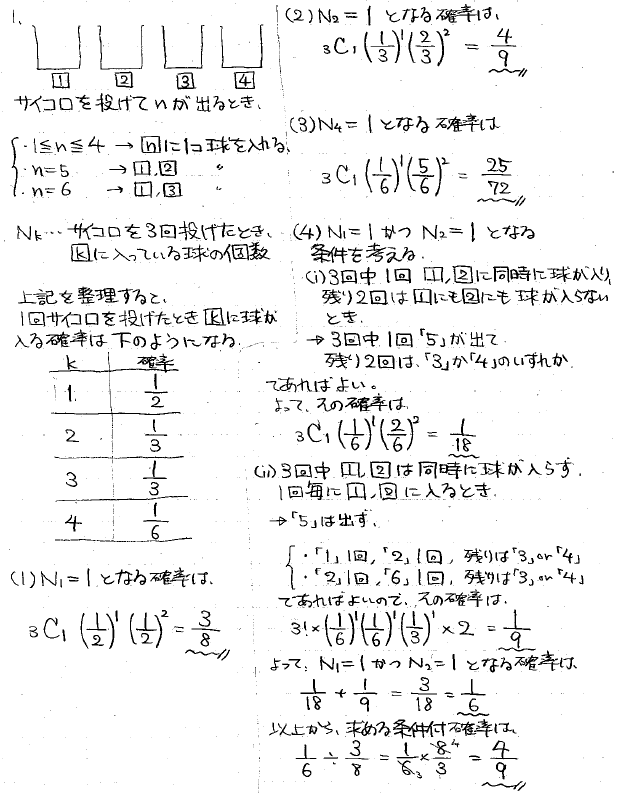 1.
1 2 3 4
サイコロを投げてnが出るとき、
・1≦n≦4 → nに1コ球を入れる、
・n=5 → 1,2 〃
・n=6 → 1,3 〃
Nk… サイコロを3回投げたとき、
kに入っている球の個数
上記を整理すると、
1回サイコロを投げたときkに球が
入る確率は下のようになる.
k 確率
1 1/2
2 1/3
3 1/3
4 1/6
(1) N₁=1となる確率は、
₃C₁ (1/2)¹ (1/2)² = 3/8
(2) N₂=1となる確率は、
₃C₁ (1/3)¹ (2/3)² = 4/9
(3) N₄=1となる確率は
₃C₁ (1/6)¹ (5/6)² = 25/72
(4) N₁=1かつ N₂=1となる
条件を考える.
(i) 3回中1回 1,2に同時に球が入り、
残り2回は1にも2にも球が入らない
とき.
→ 3回中1回「5」が出て
残り2回は、「3」か「4」のいずれか
であればよい。
よって、その確率は
₃C₁ (1/6)¹ (2/6)² = 1/18
(ii) 3回中 1,2は同時に球が入らず.
1回毎に1,2に入るとき.
→「5」は出ず.
・「1」1回,「2」1回, 残りは「3」or「4」
・「2」1回,「6」1回, 残りは「3」or「4」
であればよいので、その確率は.
3!×(1/6)¹(1/6)¹(1/3)¹×2 = 1/9
よって、N₁=1かつN₂=1となる確率は
1/18 + 1/9 = 3/18 = 1/6
以上から、求める条件付確率は、
1/6 ÷ 3/8 = 1/6 3 × 8 4/3 = 4/9